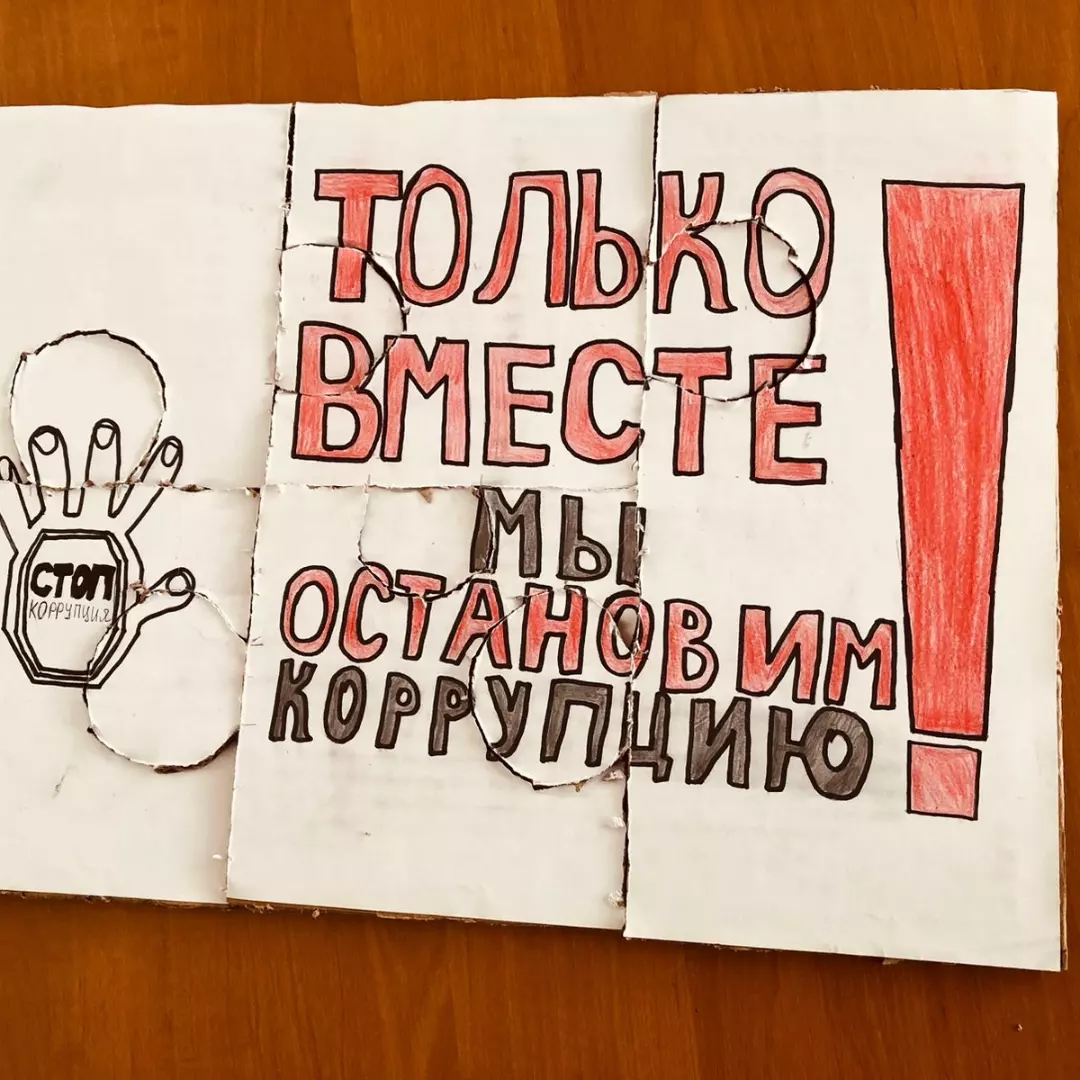 ТОЛЬКО
ВМЕСТЕ
МЫ
ОСТАНОВИМ
КОРРУПЦИЮ!
СТОП
КОРРУПЦИЯ